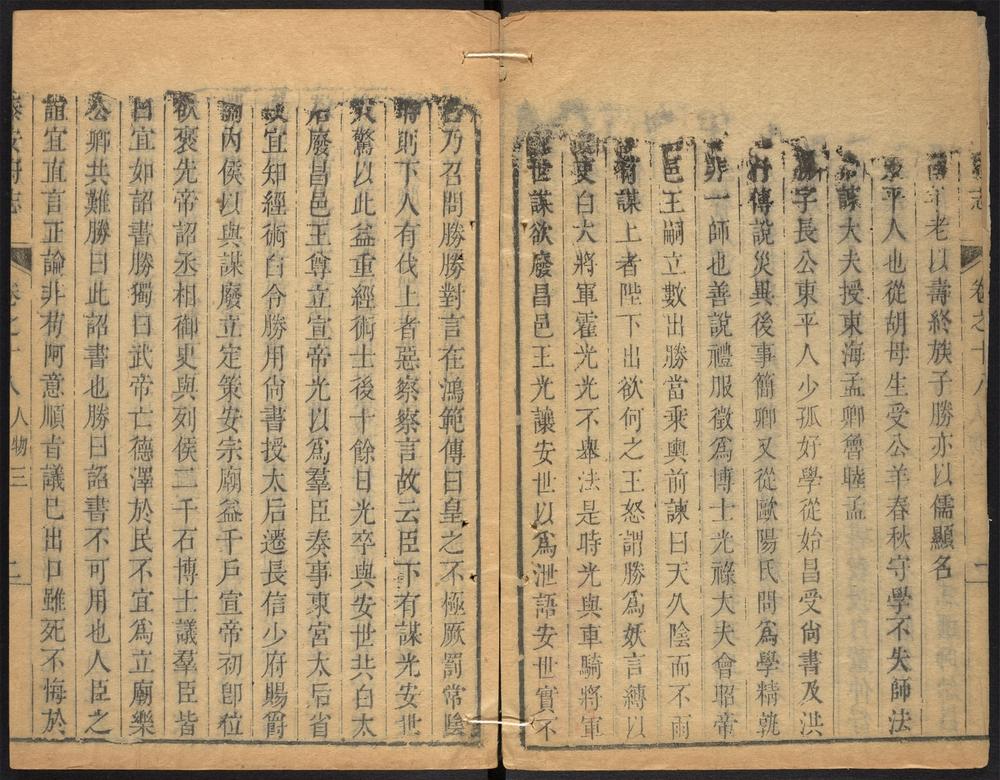 志 卷之十八 二
年老以壽終族子勝亦以儒顯名
東平人也從胡母生受公羊春秋守學不失師法
謀大夫授東海孟卿魯眭孟
勝字長公東平人少孤好學從始昌受尚書及洪
行傳說災異後事簡卿又從歐陽氏問為學精孰
非一師也善說禮服徵爲博士光祿大夫會昭帝
邑王嗣立數出勝當乘輿前諫曰天久陰而不雨
有謀上者陛下出欲何之王怒謂勝爲妖言縛以
吏白大將軍霍光光不舉法是時光與車騎將軍
世謀欲廢昌邑王光讓安世以爲泄語安世實不
乃召問勝勝對言在鴻範傳曰皇之不極厥罰常陰
時則下人有伐上者惡察察言故云臣下有謀光安世
大驚以此益重經術士後十餘日光卒與安世共白太
后廢昌邑王尊立宣帝光以爲羣臣奏事東宮太后省
政宜知經術白令勝用尚書授太后遷長信少府賜爵
關內侯以與謀廢立定策安宗廟益千戶宣帝初卽位
欲褒先帝詔丞相御史與列侯二千石博士議羣臣皆
曰宜如詔書勝獨曰武帝亡德澤於民不宜爲立廟樂
公卿共難勝曰此詔書也勝曰詔書不可用也人臣之
誼宜直言正論非苟阿意順旨議已出口雖死不悔於
泰安府志 卷之十八 人物三 二